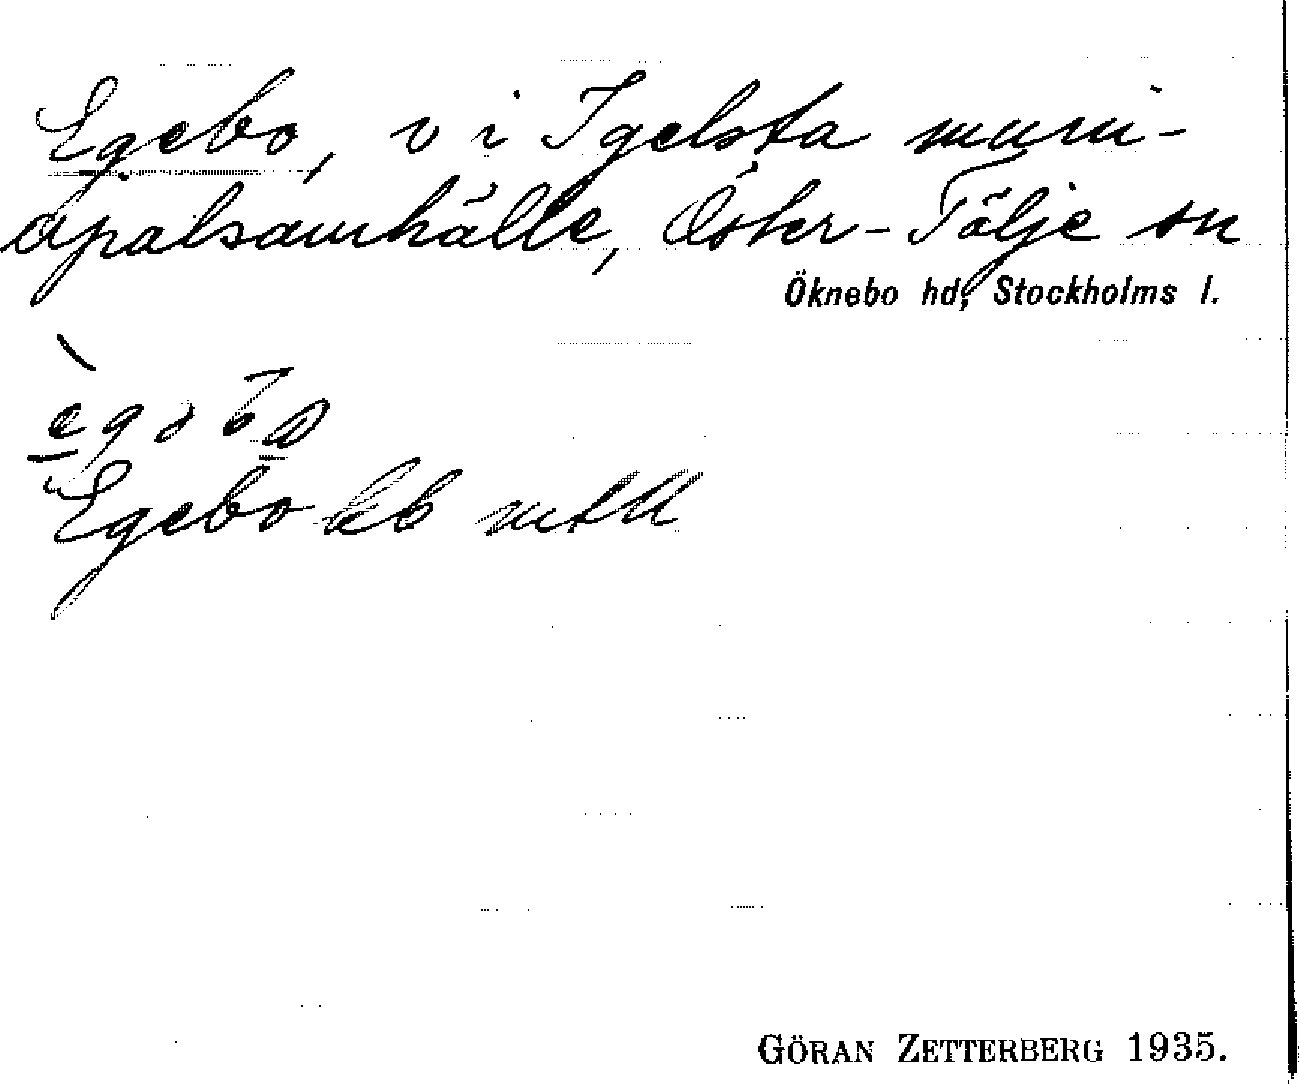 Egebo, v i Igelsta muni-
cipalsamhälle, Öster-Tälje sn
Öknebo hd, Stockholms l.
Egebo kb
GÖRAN ZETTERBERG 1935.